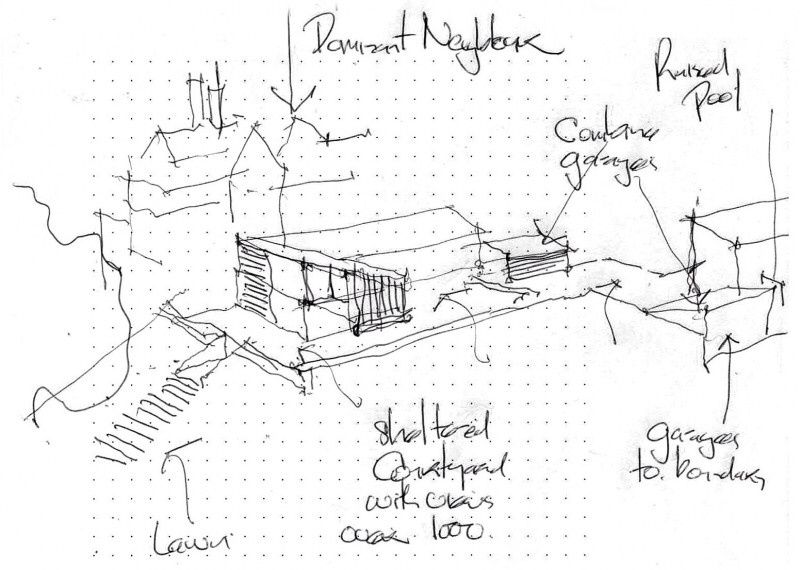 Dominant Neighbour
Raised
Pool
garages
sheltered
Courtyard
with views
over 1000.
garages
to boundary
Lawn